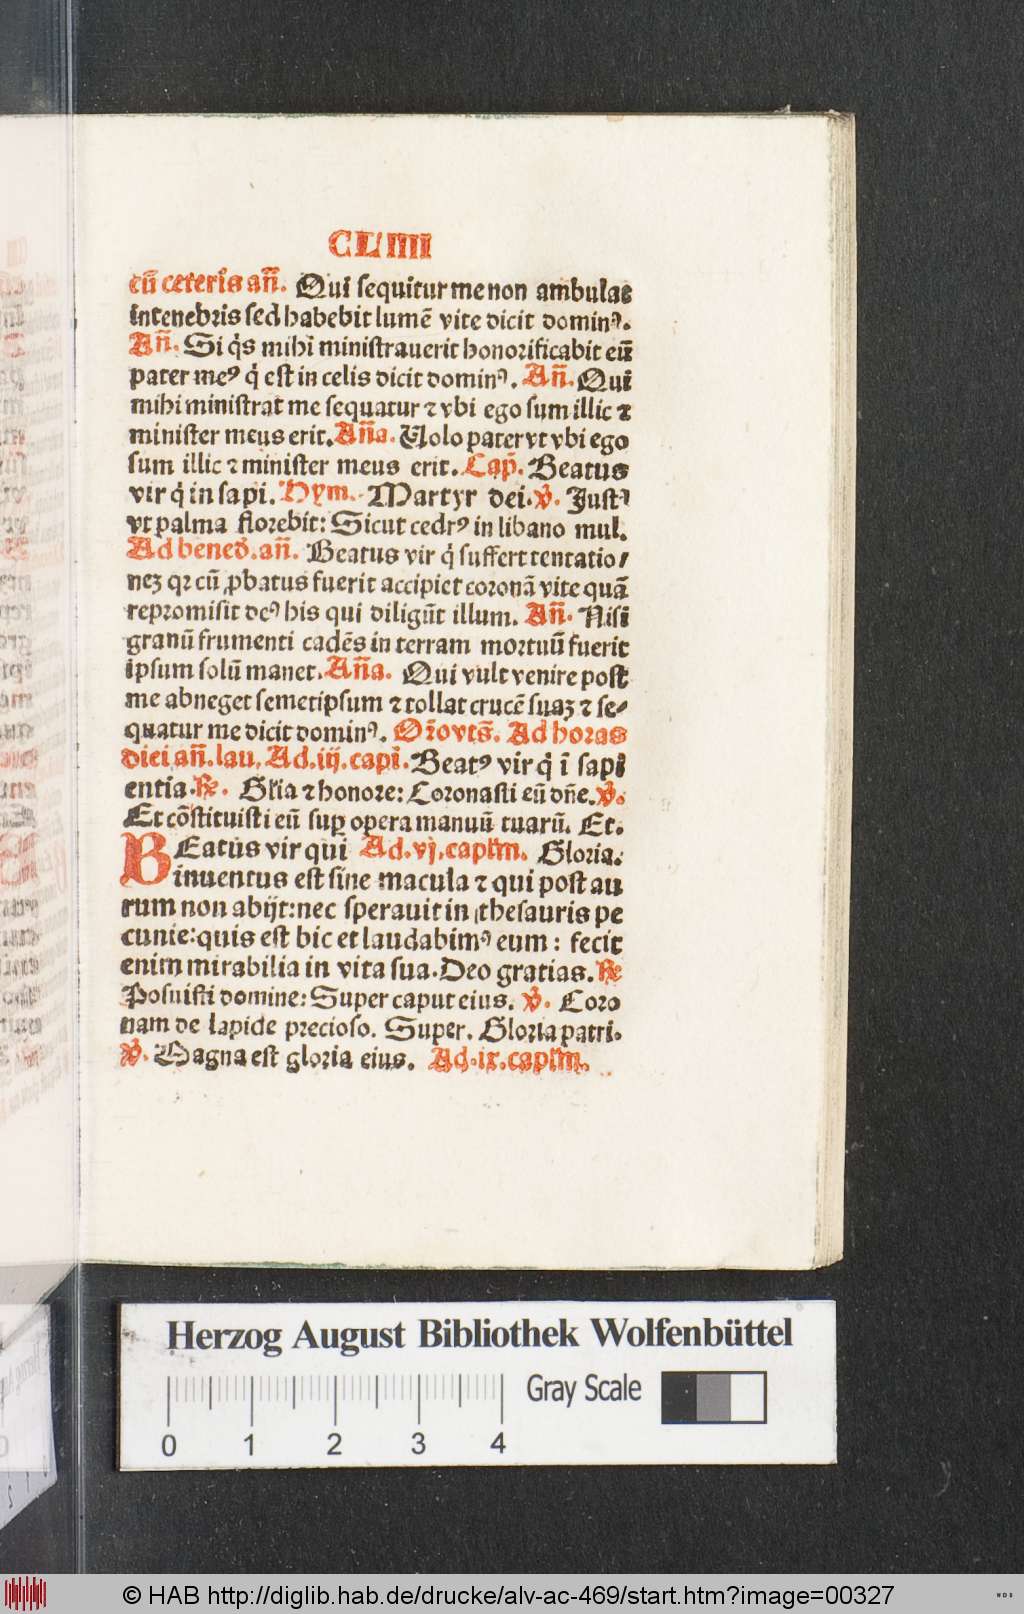 CLIIII
cū ceteris añ. Qui sequitur me non ambulat
in tenebris sed habebit lumē vite dicit dominꝰ.
Añ. Si q̇s mihi ministrauerit honorificabit eū
pater meꝰ q̇ est in celis dicit dominꝰ. Añ. Qui
mihi ministrat me sequatur ⁊ vbi ego sum illic ⁊
minister meus erit. Aña. Uolo pater vt vbi ego
sum illic ⁊ minister meus erit. Cap̄. Beatus
vir q̇ in sapi. Hym. Martyr dei. ℣. Justꝰ
vt palma florebit: Sicut cedrꝰ in libano mul.
Ad bened̄. añ. Beatus vir q̇ suffert tentatio/
neꝫ qꝛ cū ꝓbatus fuerit accipiet coronā vite quā
repromisit deꝰ his qui diligūt illum. Añ. Nisi
granū frumenti cadēs in terram mortuū fuerit
ipsum solū manet. Aña. Qui vult venire post
me abneget semetipsum ⁊ tollat crucē suaꝫ ⁊ se/
quatur me dicit dominꝰ. Or̄o vts̄. Ad horas
diei añ. lau. Ad. iij. capi. Beatꝰ vir q̇ ī sapi
entia. ℟. Glīa ⁊ honore: Coronasti eū dn̄e. ℣.
Et cōstituisti eū suꝑ opera manuū tuarū. Et.
BEatus vir qui Ad. vj. caplm̄. Gloria.
inuentus est sine macula ⁊ qui post au
rum non abijt: nec sperauit in thesauris pe
cunie: quis est hic et laudabimꝰ eum: fecit
enim mirabilia in vita sua. Deo gratias. ℟
Posuisti domine: Super caput eius. ℣. Coro
nam de lapide precioso. Super. Gloria patri.
℣. Magna est gloria eius. Ad. ix. caplm̄.
Herzog August Bibliothek Wolfenbüttel
Gray Scale
0 1 2 3 4
© HAB http://diglib.hab.de/drucke/alv-ac-469/start.htm?image=00327